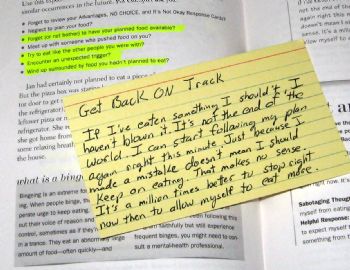 similar occurrences in the future.
• Forget to review your Advantages, NO CHOICE, and It's Not Okay Response Cards?
• Neglect to plan your food?
• Forget (or not bother) to have your planned food available?
• Meet up with someone who pushed food on you?
• Try to eat like the other people you were with?
• Encounter an unexpected trigger?
• Wind up surrounded by food you hadn't planned to eat?
Jan had certainly not planned to eat a piece of
But the pizza box was
tor door to get
the refrigerator
leftover pizza or
refrigerator. She
she got from
some relaxing breath
the house.
Get Back ON Track
If I've eaten something I shouldn't, I
haven't blown it. It's not the end of the
world. I can start following my plan
again right this minute. Just because I
made a mistake doesn't mean I should
keep on eating. That makes no sense.
It's a million times better to stop right
now then to allow myself to eat more.
what is a bing
Bingeing is an extreme for
ing. When people binge, th
perate urge to keep eating.
out their voice of reason and
control, sometimes as if they
in a trance. They eat an abnormally large
amount of food—often quickly—and
following this
faithfully but still experience
frequent binges, you might need to con-
sult a mental-health professional.
Sabotaging Though
expect myself
Helpful Response:
myself from eating
to expect myself to